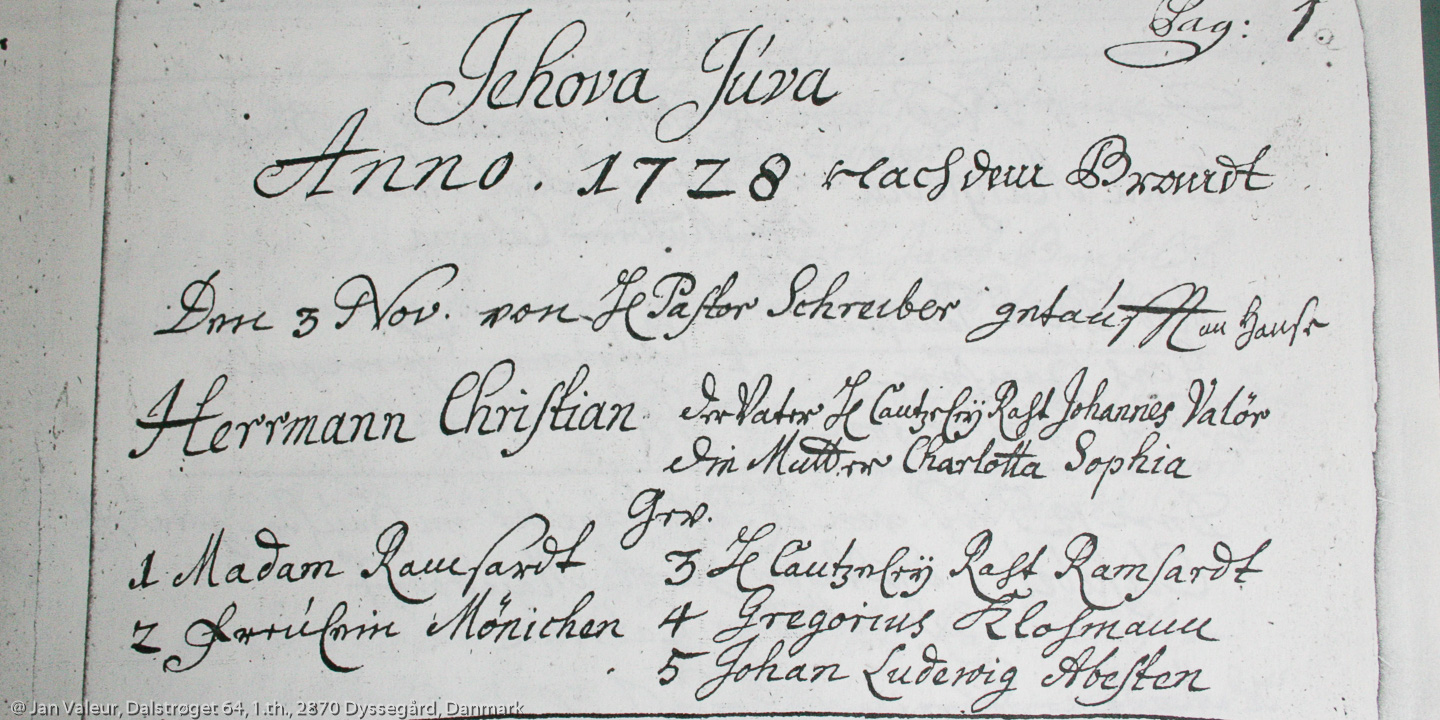 Pag: 1.
Jehova Júva
Anno. 1728 Nach dem Brandt
Den 3 Nov. von H Pastor Schreiber getaúfft im Hause
Herrmann Christian
der Vater H Cantzeleÿ Raht Johannes Valör
die Mutter Charlotta Sophia
Gev.
1 Madam Ramsardt
2 Freúlein Mönichen
3 H Cantzeleÿ Raht Ramsardt
4 Gregorius Klosmann
5 Johan Ludewig Abesten
@ Jan Valeur, Dalstrøget 64, 1.th., 2870 Dyssegård, Danmark